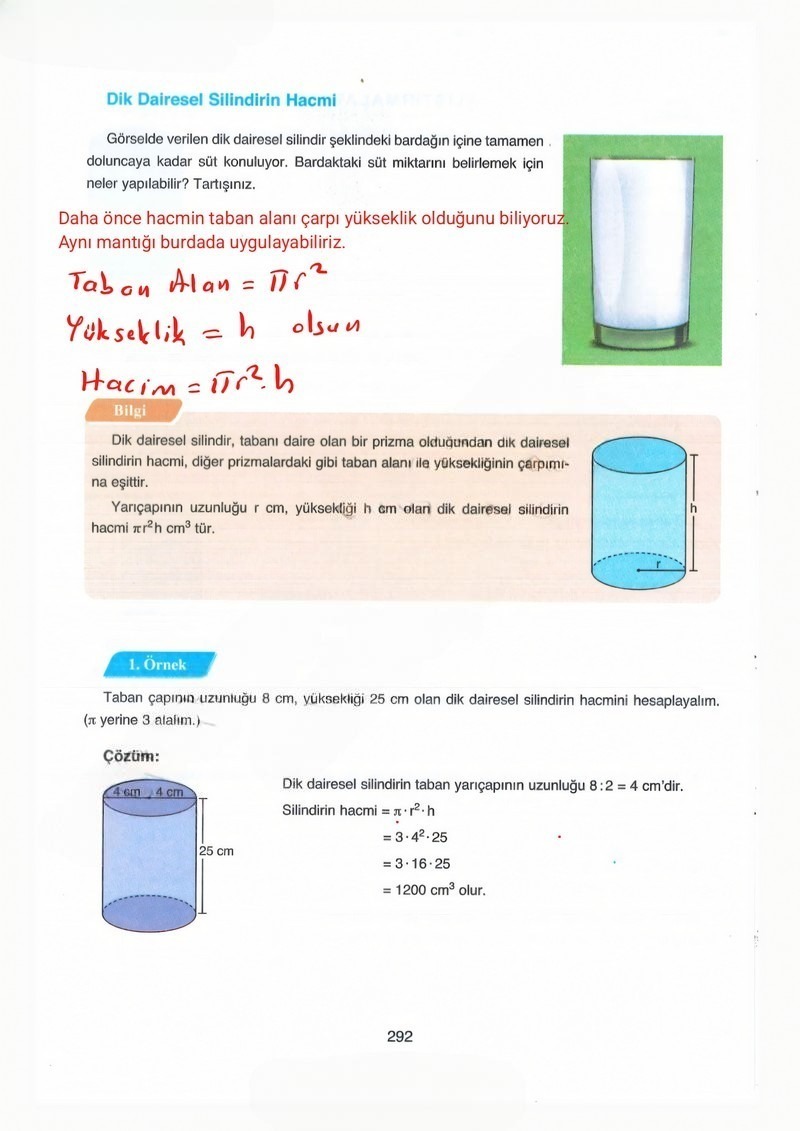 Dik Dairesel Silindirin Hacmi
Görselde verilen dik dairesel silindir şeklindeki bardağın içine tamamen
doluncaya kadar süt konuluyor. Bardaktaki süt miktarını belirlemek için
neler yapılabilir? Tartışınız.
Daha önce hacmin taban alanı çarpı yükseklik olduğunu biliyoruz.
Aynı mantığı burdada uygulayabiliriz.
Taban Alan = πr²
Yükseklik = h olsun
Hacim = πr².h
Bilgi
Dik dairesel silindir, tabanı daire olan bir prizma olduğundan dik dairesel
silindirin hacmi, diğer prizmalardaki gibi taban alanı ile yüksekliğinin çarpımı-
na eşittir.
Yarıçapının uzunluğu r cm, yüksekliği h cm olan dik dairesel silindirin
hacmi πr²h cm³ tür.
h
r
1. Örnek
Taban çapının uzunluğu 8 cm, yüksekliği 25 cm olan dik dairesel silindirin hacmini hesaplayalım.
(π yerine 3 alalım.)
Çözüm:
4 cm 4 cm
25 cm
Dik dairesel silindirin taban yarıçapının uzunluğu 8:2 = 4 cm'dir.
Silindirin hacmi = π·r²·h
= 3·4²·25
= 3·16·25
= 1200 cm³ olur.
292